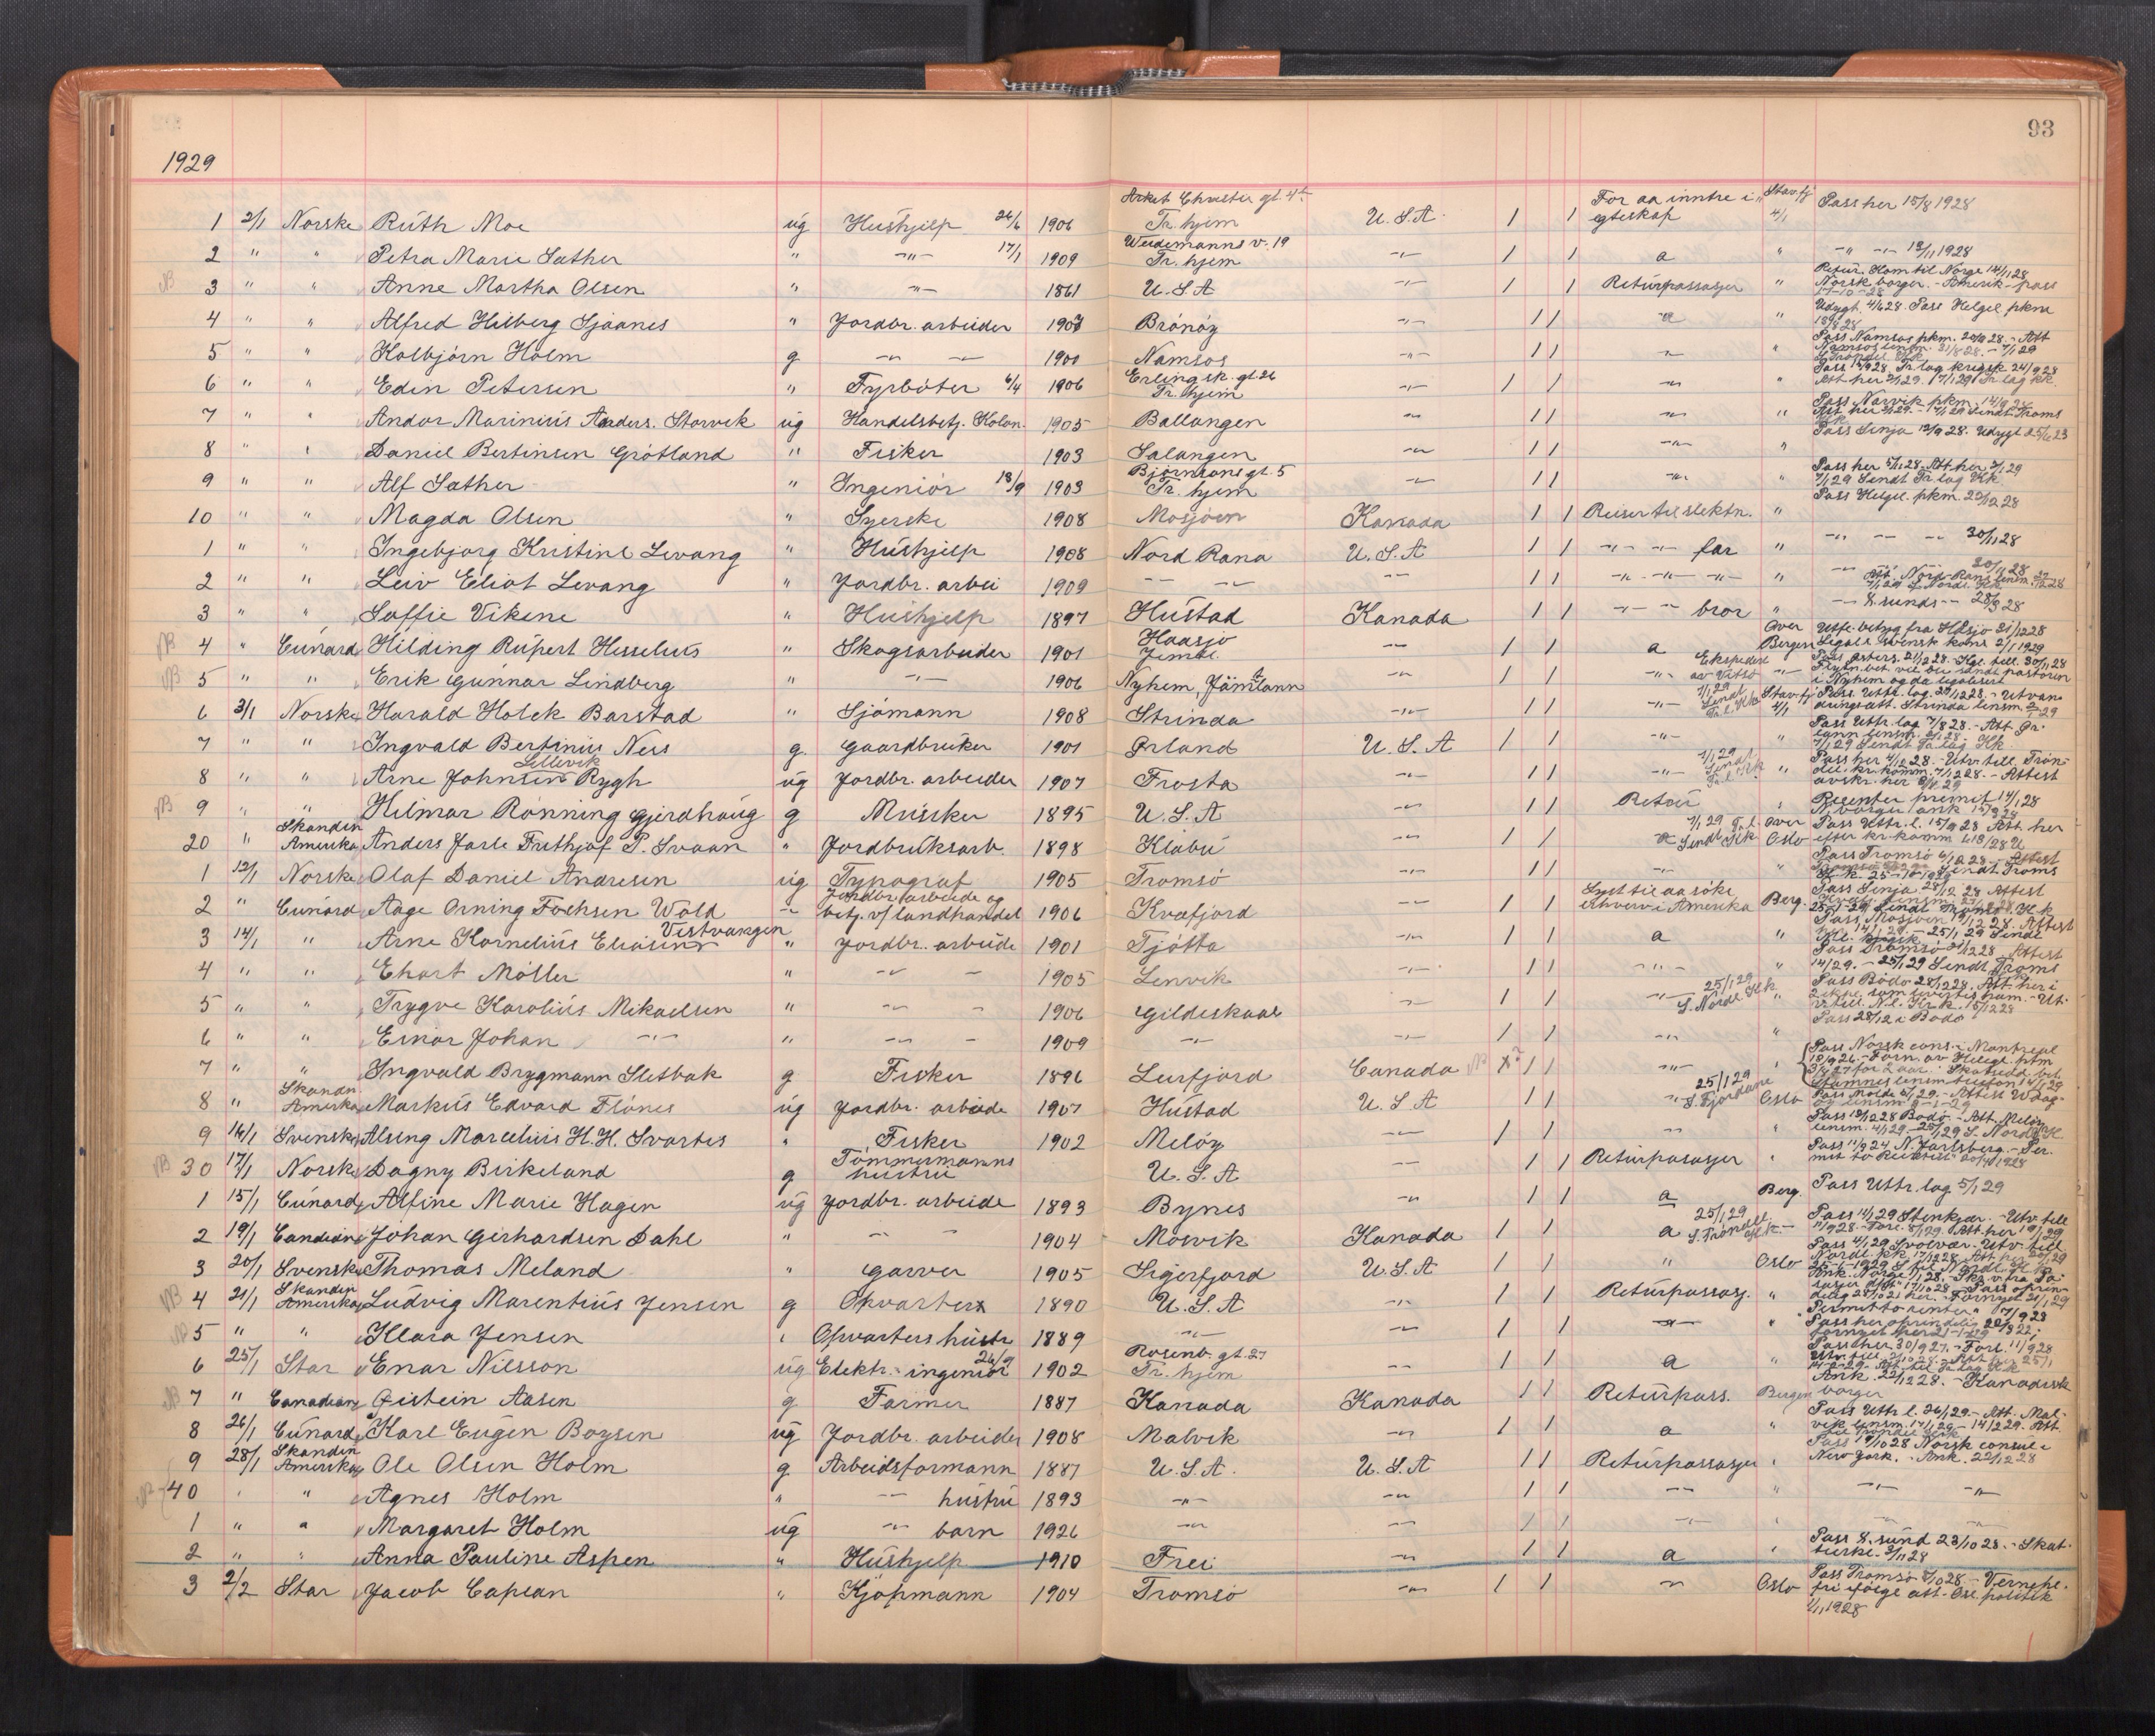 93
1929
1 2/1 Norske Ruth Moe ug Hushjelp 24/6 1906 Arket Christies gt. 4 Tr. hjem U.S.A. 1 1 For aa inntre i egteskap Stav.fj 4/1 Pass her 15/8 1928
2 " " Petra Marie Sæther " -"- 17/1 1909 Weidemanns v. 19 Tr. hjem -"- 1 1 a " -"- -"- 12/11 1928
3 " " Anne Martha Olsen " -"- 1861 U.S.A -"- 1 1 Returpassasjer " Retur. Kom til Norge 14/11 28 Norsk borger. - Amerik. pass 17-10-28
4 " " Alfred Hilberg Sjaanes " Jordbr. arbeider 1907 Brönöy -"- 1 1 a " Udygt. 4/6 28. Pass Helgel. pkm 18/8 28
5 " " Kolbjörn Holm g -"- -"- 1900 Namsos -"- 1 1 -"- " Pass Namsos pkm. - Att Namsos lensm. 31/8 28. - 7/1 29
6 " " Edin Petersen " Fyrböter 6/4 1906 Erling sk. gt. 26 Tr. hjem -"- 1 1 -"- " Pass 12/9 28 Tr.lag krigsk 24/9 28 Att her 2/1 29. 17/1 29 Tr. lag kk.
7 " " Andor Marinius Anders. Storvik ug Handelsbetj. Kolon. 1905 Ballangen -"- 1 1 -"- " Pass Narvik pkm. 14/9 28 Att her 2/1 29. - 17/1 29 Sendt Troms
8 " " Daniel Bertinsen Grötland " Fisker 1903 Salangen -"- 1 1 -"- " Pass Senja 12/9 28. Udygt 25/6 23
9 " " Alf Sæther " Ingeniör 18/9 1903 Björnsons gt. 5 Tr. hjem -"- 1 1 -"- " Pass her 5/11 28. Att her 2/1 29 7/1 29 Sendt Tr. lag Kk.
10 " " Magda Olsen " Syerske 1908 Mosjöen Kanada 1 1 Reiser til slektn. " Pass Helgel. pkm. 22/12 28
1 " " Ingebjorg Kristine Levang " Hushjelp 1908 Nord Rana U.S.A 1 1 -"- -"- far " -"- -"- -"- 30/11 28
2 " " Leiv Eliot Levang " Jordbr. arbei 1909 -"- -"- -"- 1 1 -"- -"- -"- " -"- -"- 30/11 28 Att. Nord-Rana lensm. 7/1 29 S. Nordl. Kk.
3 " " Soffie Vikene " Hushjelp 1897 Hustad Kanada 1 1 -"- -"- bror " -"- K.sunds -"- 28/9 28
4 " Cunard Hilding Rupert Hesselius " Skogsarbeider 1901 Haasjö Jemtl. -"- 1 1 a over Bergen Utfl. betyg fra Håsjö 31/12 28 Legali. svensk kons 2/1 1929
5 " " Erik Gunnar Lindberg " -"- 1906 Nyhem, Jämtlann -"- 1 1 -"- Ekspedert av Vatsö -"- Pass Östers. 21/12 28. - Kgl. till. 30/11 28 Flytn. bet. vil bli sendt pastorin i Nyhem og da legalisert
6 3/1 Norske Harald Holck Barstad " Sjömann 1908 Strinda -"- 1 1 -"- 7/1 29 Sendt Tr.l. Kk Stav.fj 4/1 Pass. Uttr. lag. 29/12 28. - Utvandringsatt. Strinda lensm. 2/1 29
7 " " Ingvald Bertinius Nes g. Gaardbruker 1901 Örland U.S.A 1 1 -"- " Pass Uttr. lag 7/8 28. - Att Örlann lensm. 7/1 29 Sendt Tr. lag Kk.
8 " " Arne Johnsen Lillevik Rygh ug Jordbr. arbeider 1907 Frosta -"- 1 1 -"- 7/1 29 Sendt Tr.l. Kk " Pass her 4/12 28. - Utv. till. Tröndel. kr. komm. 7/12 28. - Attest avskr. her 2/1 29
9 " " Hilmar Rönning Gjerdhaug g Musiker 1895 U.S.A -"- 1 1 Retur " Reenter premit 14/1 28 N. borger ank 15/9 28
20 " Skandin Amerika Anders Jarle Frithjof P. Svaan " Jordbruksarb. 1898 Klæbu -"- 1 1 a 7/1 29 Tr.l. Sendt Kk over Oslo Pass Uttr. l. 15/9 28 Att. her efter kr. komm
1 12/1 Norske Olaf Daniel Andresen ug Typograf 1905 Tromsö -"- 1 1 -"- " Pass Tromsö 6/12 28. - Attest Sendt Troms Kk. 25-1-1929
2 " Cunard Aage Orning Fochsen Wold -"- Jordbr. arbeide og betj. v/ landhandel 1906 Kvæfjord -"- 1 1 Lyst til aa söke erhverv i Amerika Berg. Pass Senja 28/12 28 Attest 25-1-29 Sendt Troms Kk
3 14/1 " Arne Kornelius Eliasen Vistvangen " Jordbr. arbeide 1901 Tjötta -"- 1 1 a " Pass Mosjöen 19/12 28. Attest 25/1 29 Sendt
4 " " Ehart Möller " -"- - 1905 Lenvik -"- 1 1 -"- " Pass Tromsö 21/12 28 Attest 14/29. - 25/1 29 Sendt Troms
5 " " Trygve Karolius Mikaelsen " -"- - 1906 Gildeskaal -"- 1 1 -"- 25/1 29 S. Nordl Kk " Pass Bodö 28/12 28. Att. her i 2 eks. som levertes ham. - Utv. till. N. l. Kr.k. 15/12 28
6 " " Einar Johan -"- " -"- - 1909 -"- -"- 1 1 -"- " Pass 28/12 i Bodö
7 " " Ingvald Brygmann Sletbak g Fisker 1896 Leirfjord Canada 1 1 -"- " Pass Norsk cons. i Montreal 18/9 26. - Forn. av Helgel. pkm 3/8 27 for 2 aar. Skatsedd. bet Stamnes lensm. telefon 14/1 29
8 " Skandin Amerika Markus Edvard Flönes ug Jordbr. arbeide 1907 Hustad U.S.A 1 1 -"- 25/1 29 S. Fjordane Oslo Pass Molde 5/1 29. - Attest Waagöy lensm 9-1-29
9 16/1 Svenske Alseng Marcelius H.H. Svartis " Fisker 1902 Melöy -"- 1 1 -"- " Pass 18/12 28 Bodö - Att. Melöy lensm. 4/1 29 - 25/1 29 S. Nordl KK
30 17/1 Norske Dagny Birkeland g Tömmermanns hustru U.S.A -"- 1 1 Returpasasjer " Pass 11/9 24 N. Jarlsberg. - Permit to
1 15/1 Cunard Alfine Marie Hagen ug Jordbr. arbeide 1893 Bynes -"- 1 1 a Berg. Pass Uttr. lag 5/1 29
2 19/1 Candian Johan Gerhardsen Dahl " -"- - 1904 Mosvik Kanada 1 1 a 25/1 29 S. Tröndel. Kk -"- Pass 14/1 29 Stenkjær. - Utv. till 11/9 28. - Forl. 8/1 29. Att. her 19/1 29
3 20/1 Svenske Thomas Meland " Garver 1905 Sigerfjord U.S.A 1 1 " Oslo Pass 4/1 29 Svolvær. Utv. till Nordl. KK 17/8 28. Att. her 20/1 29 25-1-1929 S. til Nordl. Kk
4 21/1 Skandin Amerika Ludvig Marentius Jensen g Opvarter 1890 U.S.A -"- 1 1 Returpassasj. " Ank. Norge 1/1 28. Pass oprindelig 28/10 21 her. - Fornyet 21/1 29 Permit to reenter 17/9 28
5 " " Klara Jensen " Opvarters hustr 1889 -"- -"- 1 1 -"- " Pass her oprindelig 20/9 22, fornyet her 21-1-29
6 25/1 Star Enar Nilsson ug Elektr. - ingeniör 26/9 1902 Rosenb. gt. 27 Tr. hjem -"- 1 1 a " Pass her 30/9 27. - Forl. 11/9 28
7 " Canadian Öistein Aasen g Farmer 1887 Kanada Kanada 1 1 Returpass. Bergen Ank. 22/12 28. - Kanadisk borger
8 26/1 Cunard Karl Eugen Boysen ug Jordbr. arbeider 1908 Malvik -"- 1 1 a " Pass Uttr. l. 26/1 29. - Att. Malvik lensm. 17/1 29 - 14/12 29. Att.
9 28/1 Skandin Amerika Ole Olsen Holm g Arbeidsformann 1887 U.S.A. U.S.A 1 1 Returpassasjer " Pass 19/10 28 Norsk consul i New York. - Ank. 22/12 28
40 " " Agnes Holm " -"- hustru 1893 -"- -"- 1 1 -"- " -"- -"-
1 " " Margaret Holm ug -"- barn 1926 -"- -"- 1 1 -"- " -"- -"-
2 " " Anna Pauline Aspen " Hushjelp 1910 Frei -"- 1 1 a " Pass K.sund 23/10 28. - Skat.
3 2/2 Star Jacob Caplan " Kjöpmann 1904 Tromsö -"- 1 1 -"- Oslo Pass Tromsö 8/10 28 - Vernepl. fri ifölge att. Osl. politik 1/11 1928